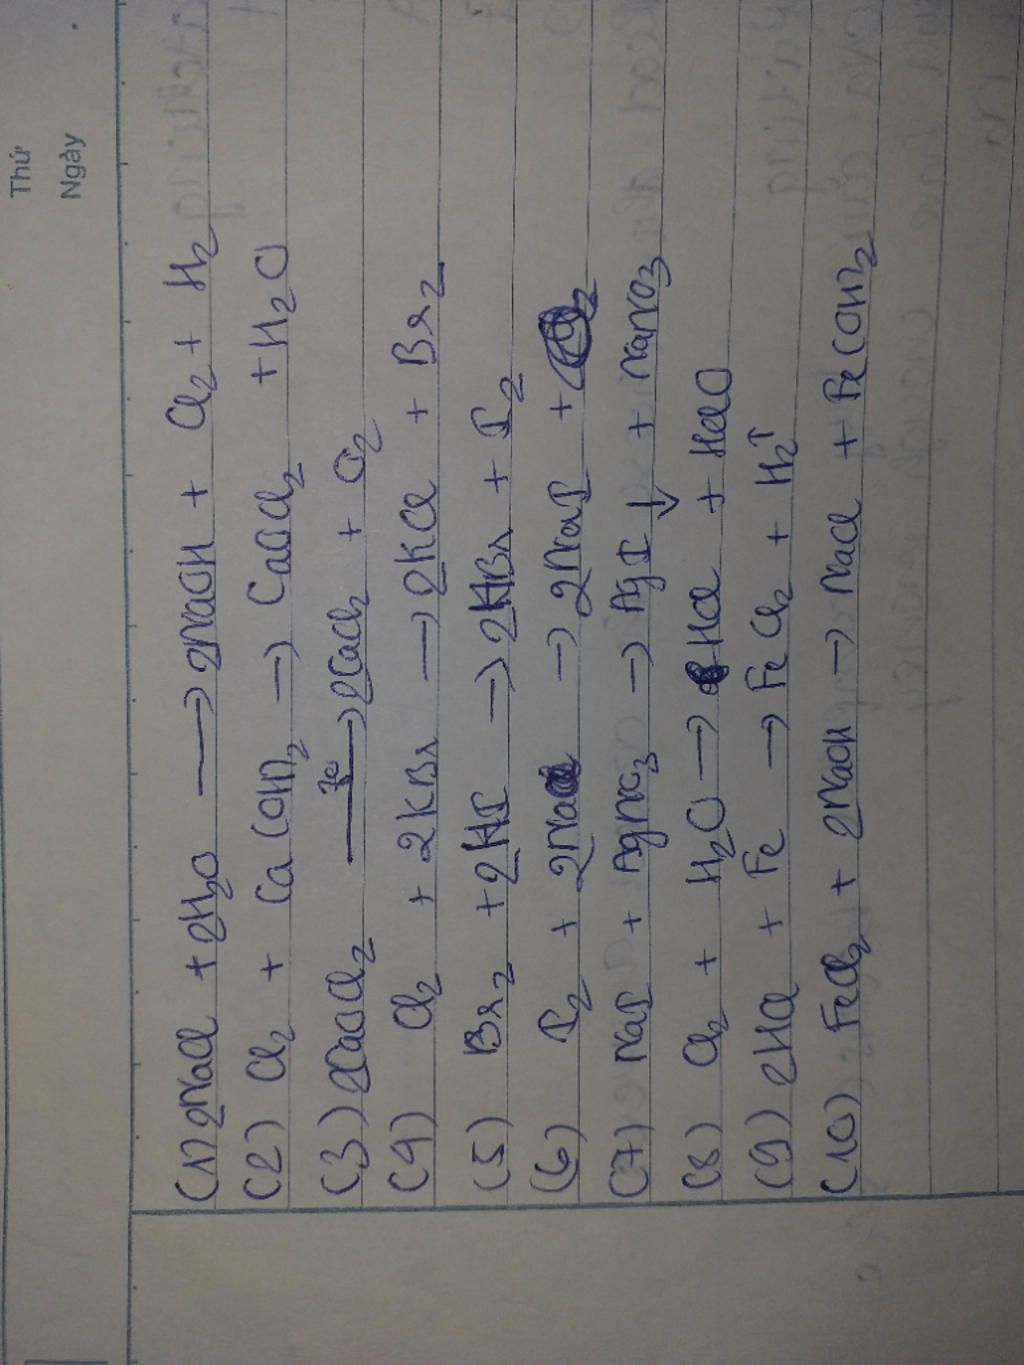 Thứ
Ngày
(1) 2NaCl + 2H₂O → 2NaOH + Cl₂ + H₂
(2) Cl₂ + Ca(OH)₂ → CaOCl₂ + H₂O
(3) 2CaOCl₂ → 2CaCl₂ + O₂
(4) Cl₂ + 2KBr → 2KCl + Br₂
(5) Br₂ + 2HI → 2HBr + I₂
(6) I₂ + 2Na → 2NaI +
(7) NaI + AgNO₃ → AgI ↓ + NaNO₃
(8) Cl₂ + H₂O → HCl + HClO
(9) 2HCl + Fe → FeCl₂ + H₂↑
(10) FeCl₂ + 2NaOH → NaCl + Fe(OH)₂